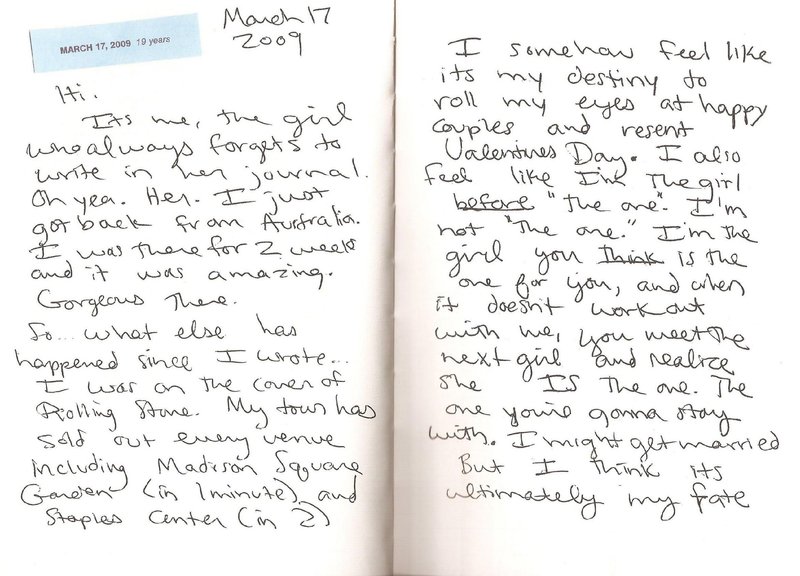 MARCH 17, 2009 19 years
March 17
2009
Hi.
Its me, the girl
who always forgets to
write in her journal.
Oh yea. Her. I just
got back from Australia.
I was there for 2 weeks
and it was amazing.
Gorgeous There.
So... what else has
happened since I wrote...
I was on the cover of
Rolling Stone. My tour has
sold out every venue
including Madison Square
Garden (in 1 minute) and
Staples Center (in 2)
I somehow feel like
its my destiny to
roll my eyes at happy
couples and resent
Valentines Day. I also
feel like I'm The girl
before "the one". I'm
not "The one." I'm the
girl you think is the
one for you, and when
it doesn't work out
with me, you meet the
next girl and realize
she IS The one. The
one you're gonna stay
with. I might get married
But I think its
ultimately my fate